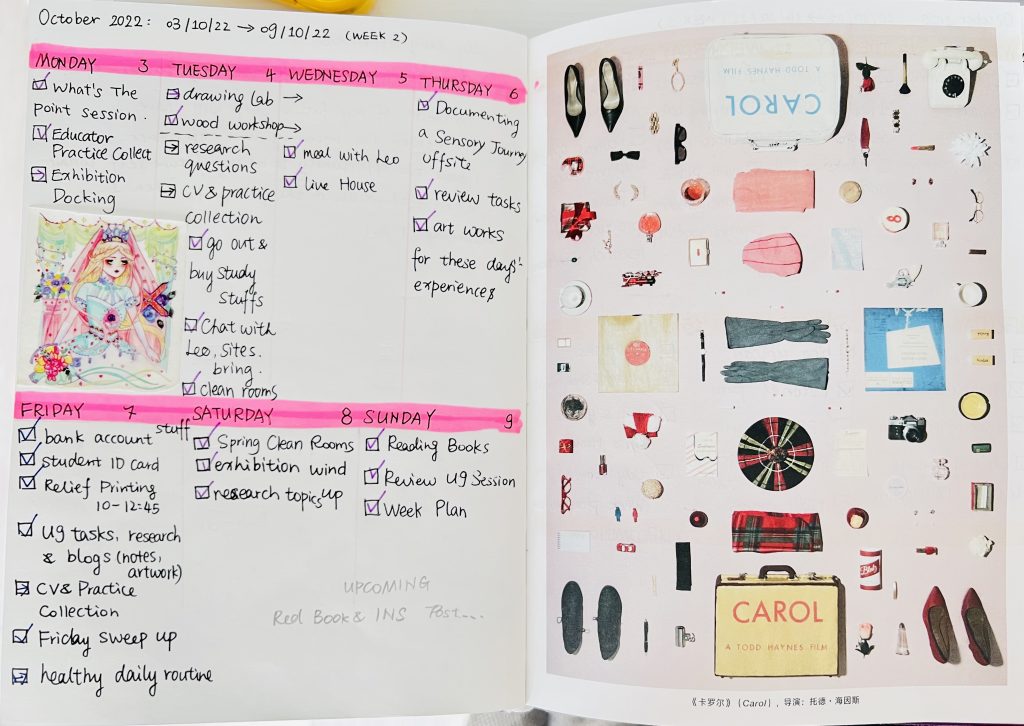 October 2022: 03/10/22 → 09/10/22 (WEEK 2)
MONDAY 3
What's The
Point Session.
Educator
Practice Collect
Exhibition
Docking
TUESDAY 4
drawing lab →
wood workshop →
research
questions
CV & practice
collection
go out &
buy study
stuffs
Chat with
Leo, Sites.
bring.
clean rooms
WEDNESDAY 5
meal with Leo
live House
THURSDAY 6
Documenting
a Sensory Journey
offsite
review tasks
art works
for these days'
experiences
FRIDAY 7
bank account stuff
Student ID card
Relief Printing
10-12:45
UG tasks, research
& blogs (notes,
artwork)
CV & Practice
Collection
Friday sweep up
healthy daily routine
SATURDAY 8
Spring Clean Rooms
exhibition wind
research topics up
SUNDAY 9
Reading Books
Review UG Session
Week Plan
UPCOMING
Red Book & INS Post...
CAROL
A TODD HAYNES FILM
8
CAROL
A TODD HAYNES FILM
《卡罗尔》(Carol),导演:托德·海因斯